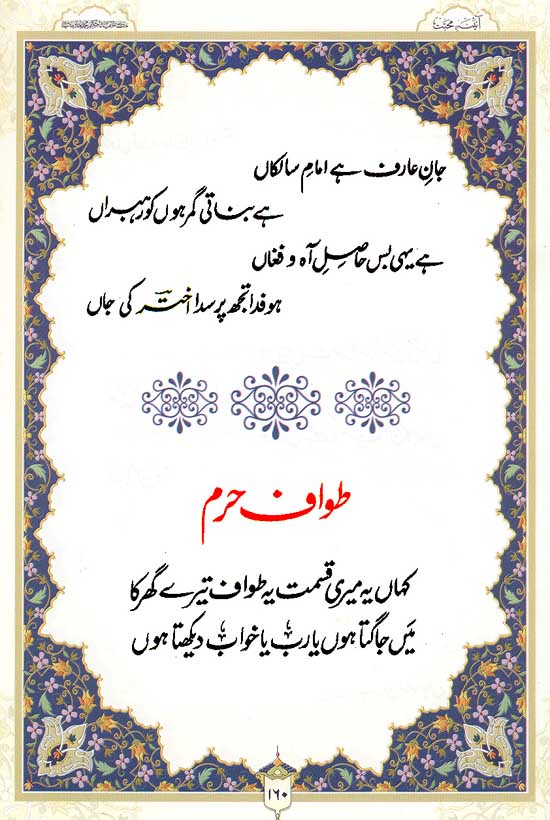 آئینۂ محبت
جانِ عارف ہے امامِ سالکاں
ہے بناتی گمرہوں کو رہبراں
ہے یہی بس حاصلِ آہ و فغاں
ہو فدا تجھ پر سدا اختر کی جاں
طوافِ حرم
کہاں یہ میری قسمت یہ طواف تیرے گھر کا
مَیں جاگتا ہوں یارب یا خواب دیکھتا ہوں
۱۶۰